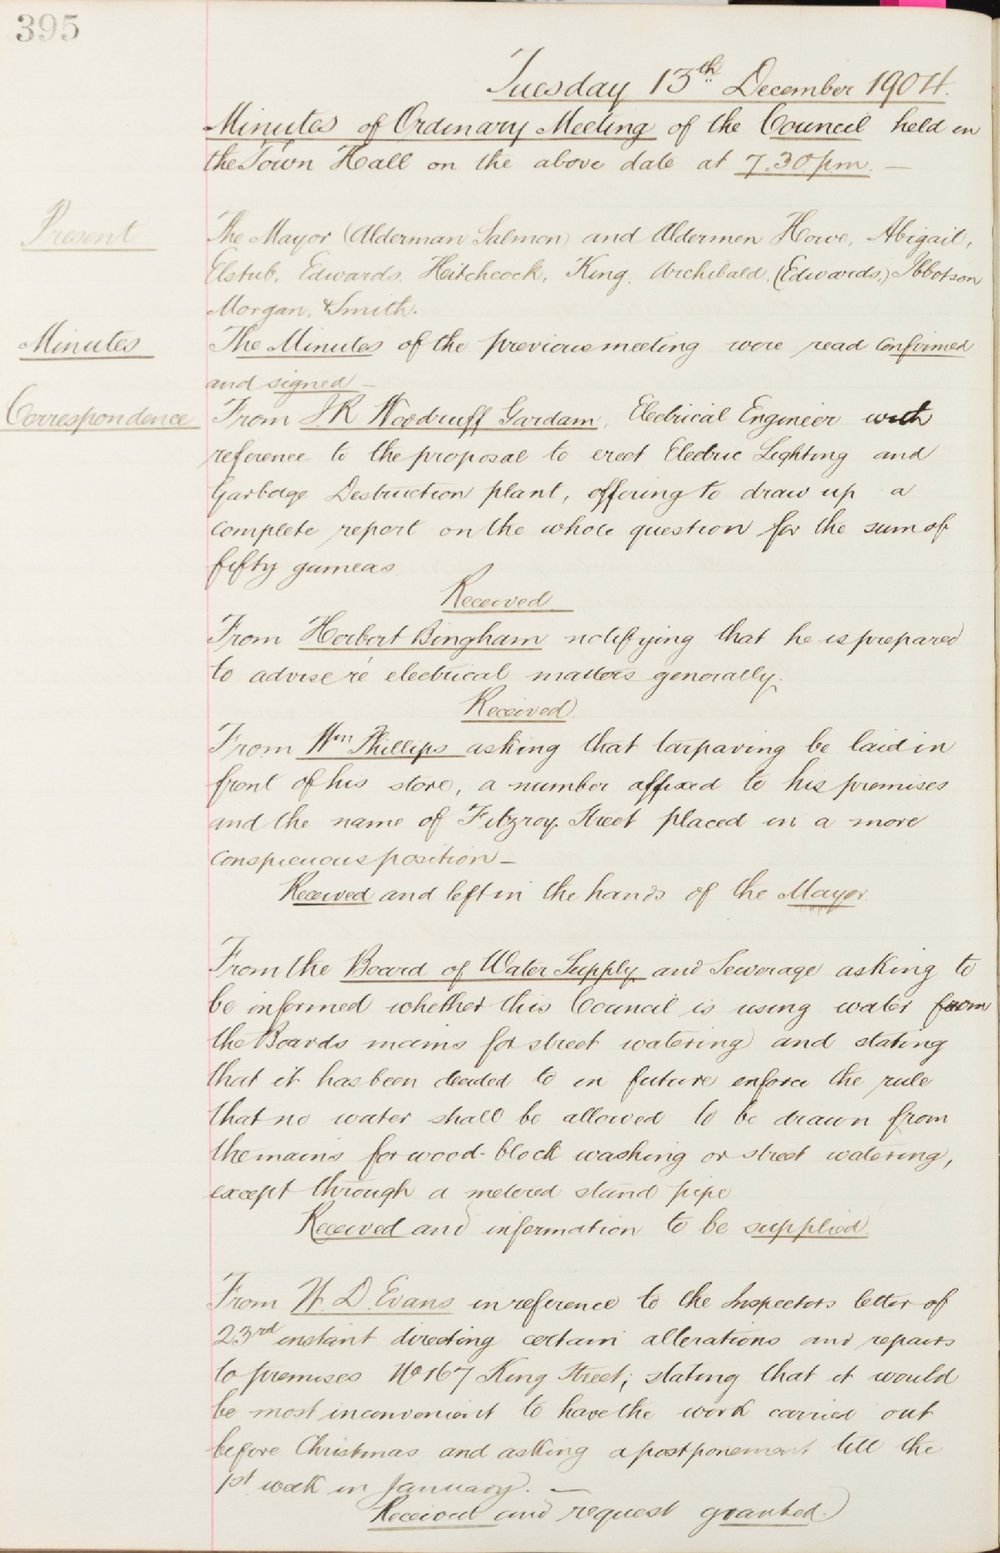 395
Tuesday 13th December 1904.
Minutes of Ordinary Meeting of the Council held in
the Town Hall on the above date at 7.30 pm. —
Present
The Mayor (Alderman Salmon) and Aldermen Howe, Abigail,
Elstub, Edwards, Hitchcock, King, Archibald, (Edwards,) Ibbotson
Morgan, & Smith.
Minutes
The Minutes of the previous meeting were read confirmed
and signed —
Correspondence
From J R Woodruff Gardam, Electrical Engineer with
reference to the proposal to erect Electric Lighting and
Garbage Destruction plant, offering to draw up a
complete report on the whole question for the sum of
fifty guineas
Received
From Herbert Bingham notifying that he is prepared
to advise re electrical matters generally.
Received
From Wm Phillips asking that tarpaving be laid in
front of his store, a number affixed to his premises
and the name of Fitzroy Street placed in a more
conspicuous position —
Received and left in the hands of the Mayor
From the Board of Water Supply and Sewerage asking to
be informed whether this Council is using water from
the Boards mains for street watering and stating
that it has been decided to in future enforce the rule
that no water shall be allowed to be drawn from
the mains for wood-block washing or street watering,
except through a metered stand pipe
Received and information to be supplied.
From W D Evans in reference to the Inspectors letter of
23rd instant directing certain alterations and repairs
to premises No 167 King Street; stating that it would
be most inconvenient to have the work carried out
before Christmas and asking a postponement till the
1st week in January. —
Received and request granted.